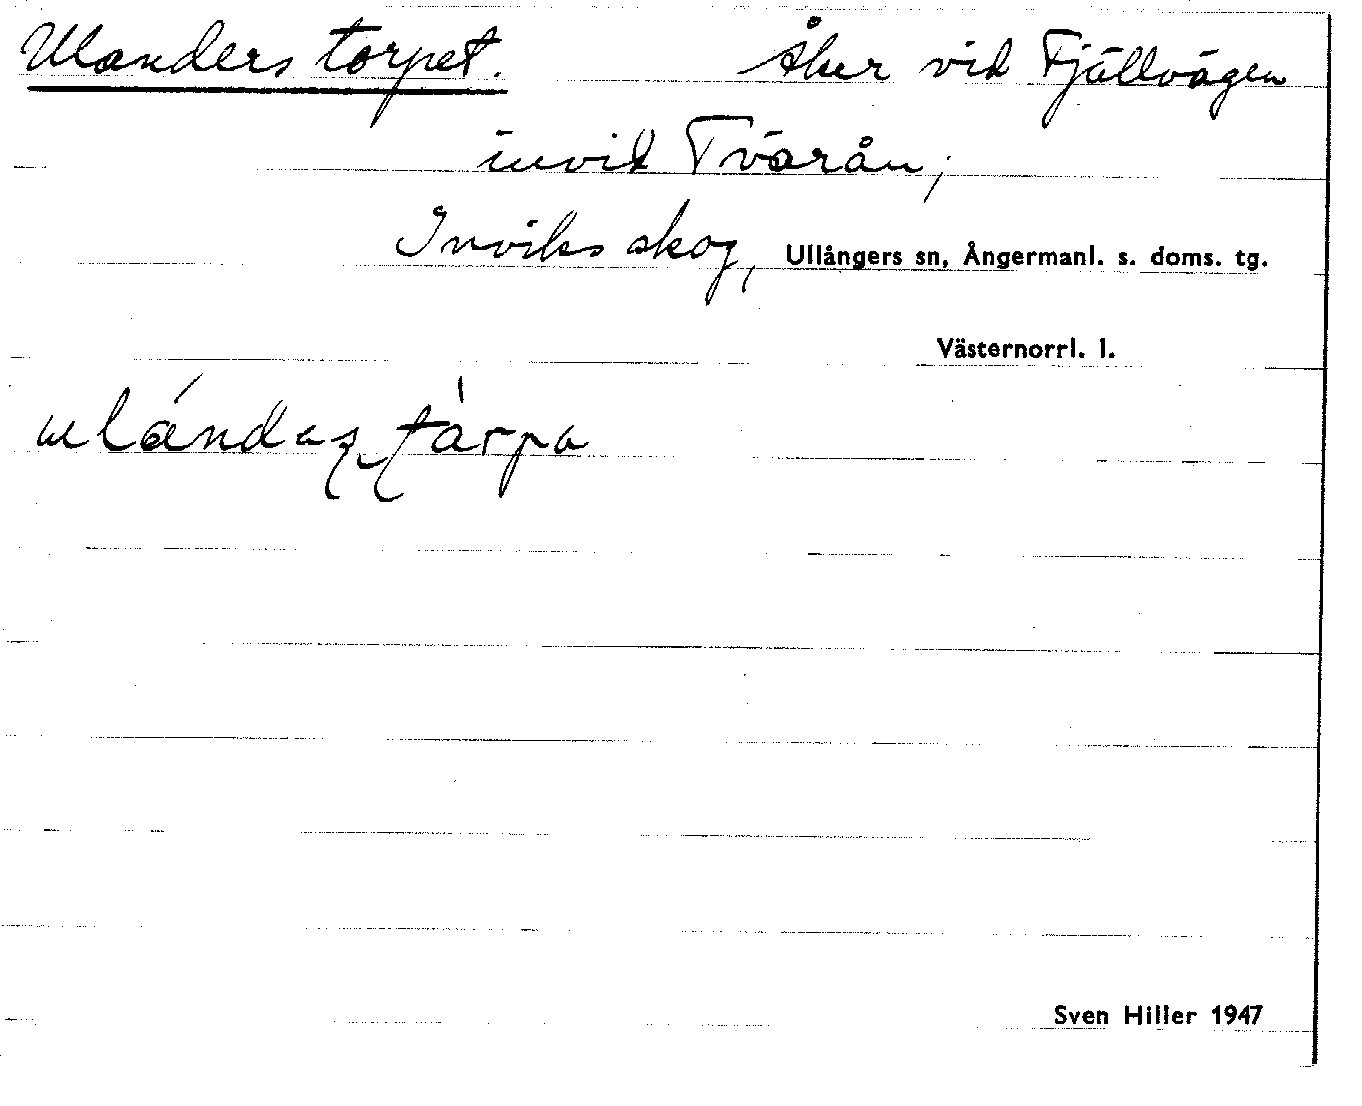 Ulanders torpet. Åker vid Fjällvägen
invid Tvärån,
Inviks skog, Ullångers sn, Ångermanl. s. doms. tg.
Västernorrl. l.
Sven Hiller 1947